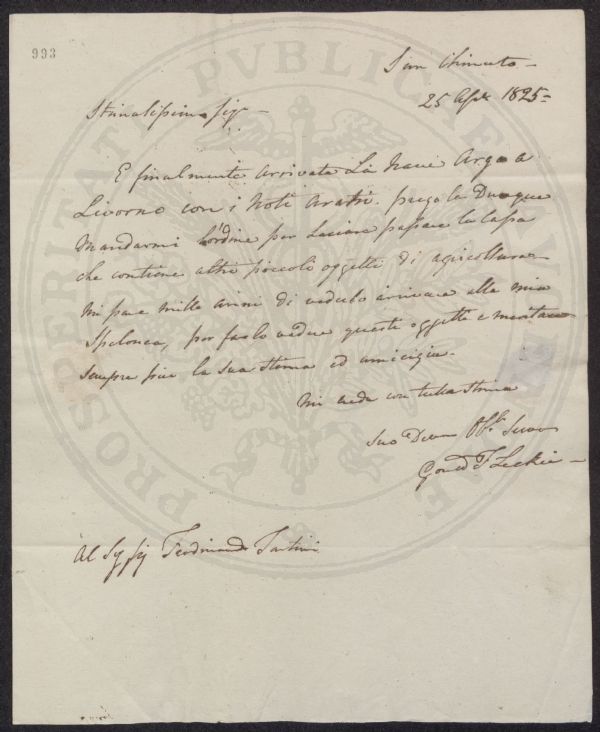 993
San Miniato
25 Aple 1825
Stimatissimo Sigr
E finalmente arrivata La Nave Argo a
Livorno con i Noti Aratri. prego la Dunque
Mandarmi L'ordine per Lasciare passare la Cassa
che contiene altri piccoli oggetti di agricoltura
Mi pare mille anni di vederlo arrivare alla mia
Spelonca, per farlo vedere questi oggetti e meritare
sempre piu la sua stima ed amicizia.
Mi creda con tutta stima
Suo Devmo Obb. Servo
Gould F Leckie
Al Sig Sig Ferdinando Tartini
PROSPERITATI PVBLICAE AVGENDAE